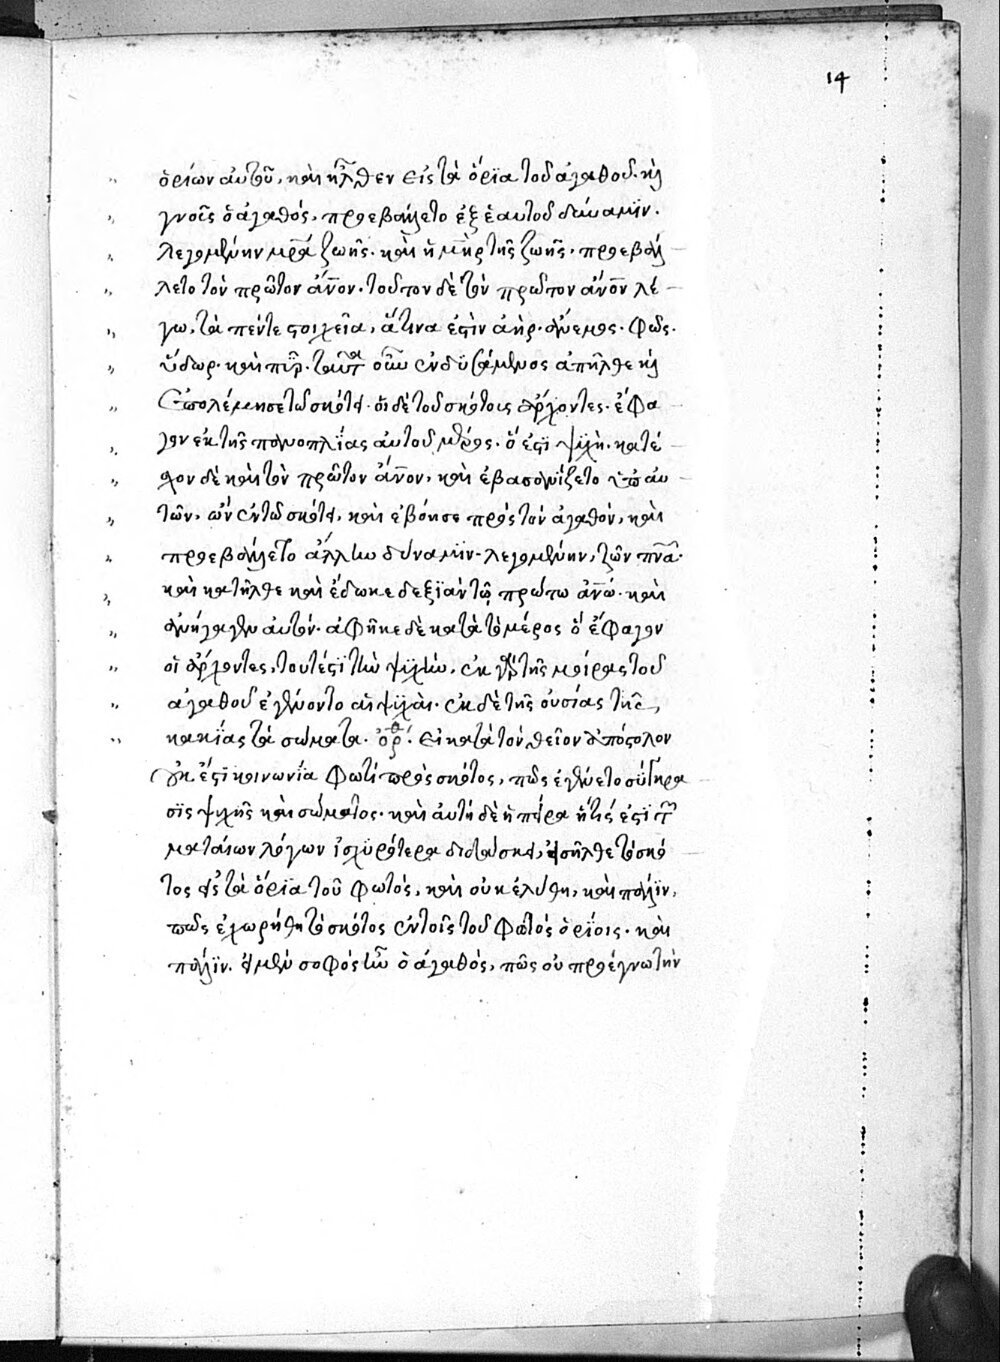 14
ὁρίων αὐτοῦ, καὶ ἦλθεν εἰς τὰ ὅρϊα τοῦ ἀγαθοῦ. κ̀
γνοῖς ὁ ἀγαθός, προεβάλετο ἐξ ἑαυτοῦ δύναμϊν.
λεγομένην μρ̅α ζωῆς. καὶ ἡ μη̅ρ τῆς ζωῆς, προεβάλ
λετο τὸν πρῶτον ἄν̅ον. τοῦτον δὲ τὸν πρῶτον ἄν̅ον λέ
γω, τὰ πέντε στοιχεῖα, ἅτινα ἐστὶν ἀὴρ. ἄνεμος. φῶς.
ὕδωρ. καὶ πῦρ. ταῦτα οὖν ἐνδϋσάμενος ἀπῆλθε κ̀
ἐπολέμησε τῶ σκότει. οἱ δὲ τοῦ σκότους ἄρχοντες. ἔφα
γον ἐκ τῆς πανοπλΐας αὐτοῦ μέρος. ὅ ἐστϊ ψϋχὴ. κατέ
χον δὲ καὶ τὸν πρῶτον ἄν̅ον, καὶ ἐβασανίζετο ὑπ αὐ
τῶν, ὢν ἐν τῶ σκότει, καὶ ἐβόησε πρὸς τὸν ἀγαθόν, καὶ
προεβάλετο ἄλλην δύναμϊν. λεγομένην, ζῶν πν̅α.
καὶ κατῆλθε καὶ ἔδωκε δεξϊὰν τῶ πρώτω ἀν̅ω. καὶ
ἀνήγαγεν αὐτόν. ἀφῆκε δὲ κατὰ τὸ μέρος ὅ ἔφαγον
οἱ ἄρχοντες, τουτέστϊ τὴν ψϋχὴν. ἐκ γὰρ τῆς μοίρας τοῦ
ἀγαθοῦ ἐγένοντο αἱ ψϋχαὶ. ἐκ δὲ τῆς οὐσίας τῆς
κακΐας τὰ σώματα. ὀρθ. εἰ κατὰ τὸν θεῖον ἀπόστολον
οὐκ ἔστϊ κοινωνΐα φωτὶ πρὸς σκότος, πῶς ἐγένετο σύγκρα
σϊς ψυχῆς καὶ σώματος. καὶ αὐτὴ δὲ ἡ πεῖρα ἥτις ἐστὶ τῶν
ματαίων λόγων ἰσχυρότερα διδάσκει, εἰσῆλθε τὸ σκό
τος εἰς τὰ ὅρϊα τοῦ φωτός, καὶ οὐκ ἐλύθη, καὶ πάλϊν,
πῶς ἐχωρήθη τὸ σκότος ἐν τοῖς τοῦ φωτὸς ὁρΐοις. καὶ
πάλϊν. εἰ μὲν σοφὸς ἦν ὁ ἀγαθός, πῶς οὐ προέγνω τὴν